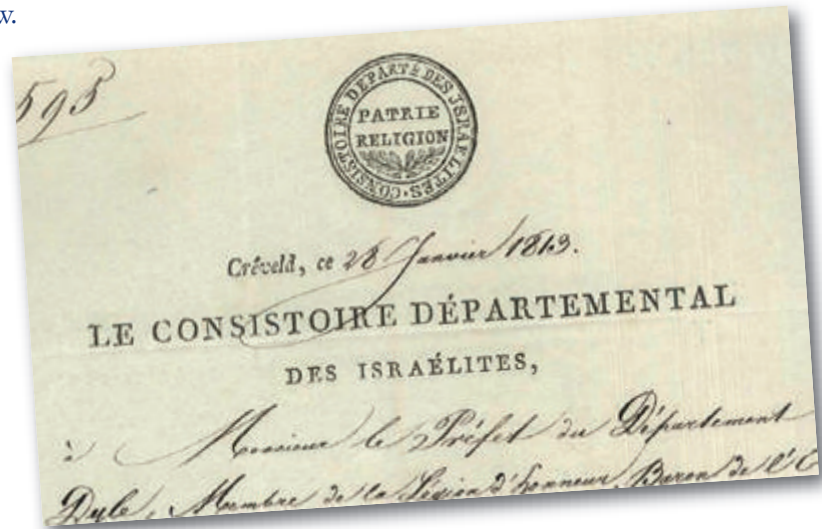 w.
595
CONSISTOIRE DÉPART.ᴸ DES ISRAÉLITES.
PATRIE
RELIGION
Créveld, ce 28 Janvier 1813.
LE CONSISTOIRE DÉPARTEMENTAL
DES ISRAÉLITES,
à Monsieur le Préfet du Département
Dyle, Membre de la Légion d'honneur, Baron de l'E